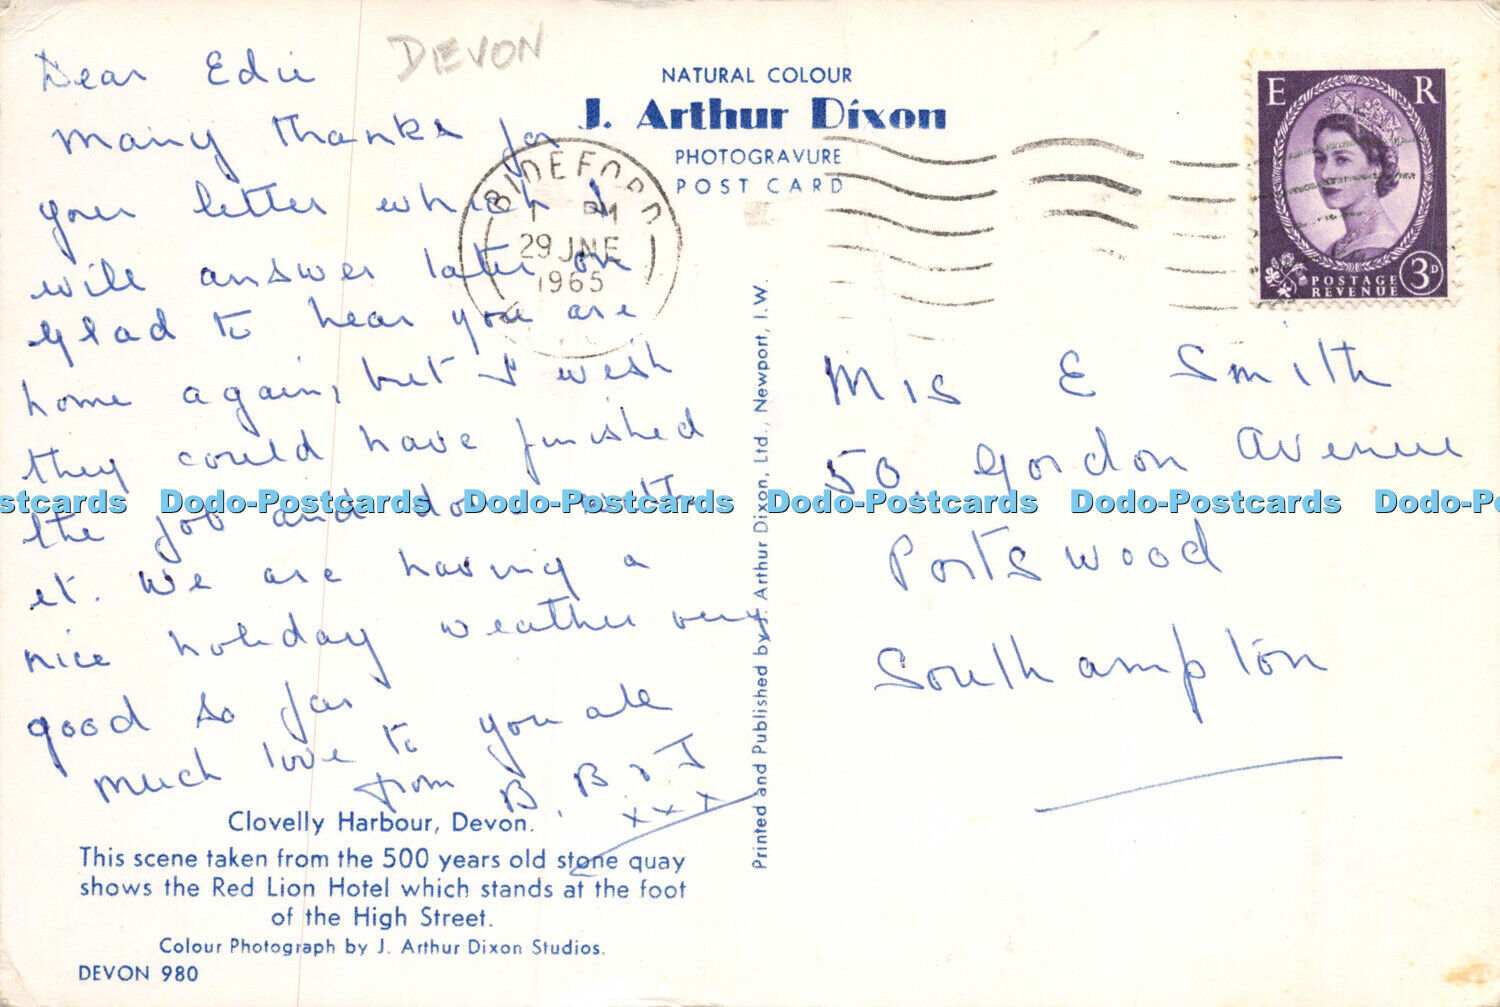 Dear Edie
DEVON
Many thanks for
your letter which I
will answer later on
Glad to hear you are
home again, but I wish
they could have finished
the job and done with
it. We are having a
nice holiday weather very
good so far
Much love to you all
from B. B & J
x x x
Clovelly Harbour, Devon.
This scene taken from the 500 years old stone quay
shows the Red Lion Hotel which stands at the foot
of the High Street.
Colour Photograph by J. Arthur Dixon Studios.
DEVON 980
NATURAL COLOUR
J. Arthur Dixon
PHOTOGRAVURE
POST CARD
BIDEFORD
PM
29 JNE
1965
Printed and Published by J. Arthur Dixon, Ltd., Newport, I.W.
E R
POSTAGE
REVENUE
3D
Mrs E Smith
50, Gordon Avenue
Portswood
Southampton
stcards Dodo-Postcards Dodo-Postcards Dodo-Postcards Dodo-Postcards Dodo-Po